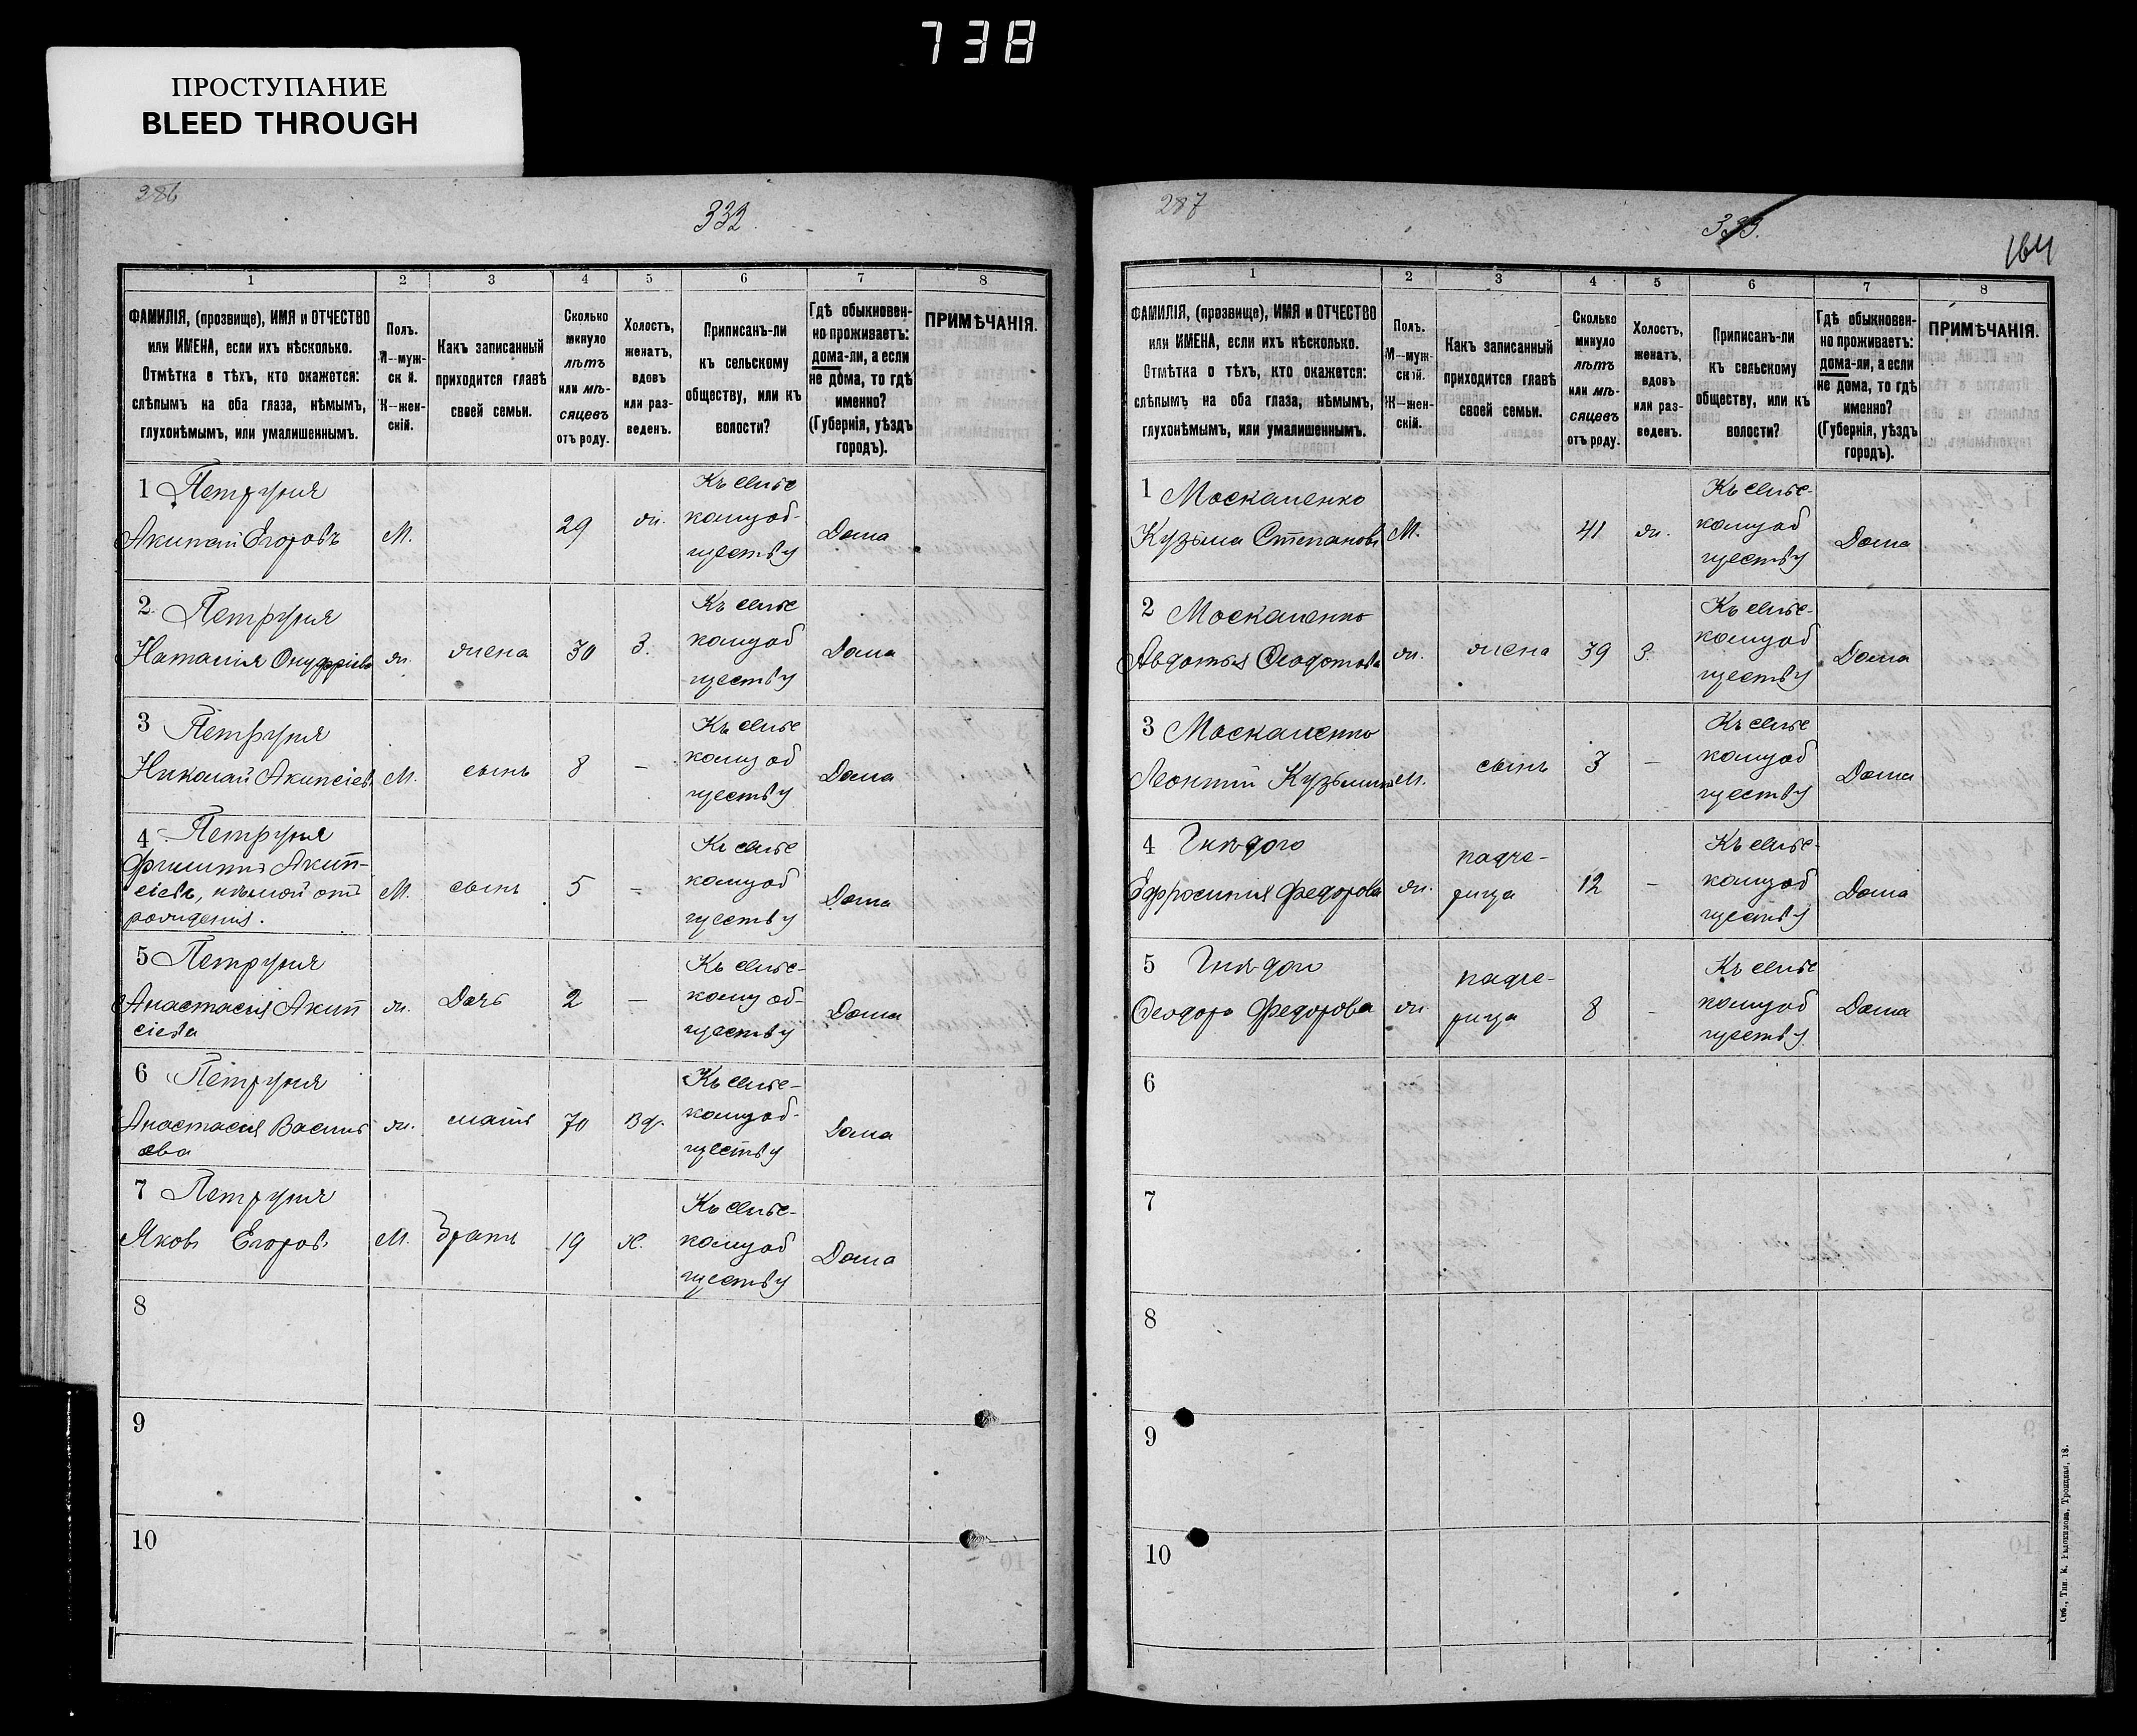 738
ПРОСТУПАНИЕ
BLEED THROUGH
286
332.
1 2 3 4 5 6 7 8
ФАМИЛІЯ, (прозвище), ИМЯ и ОТЧЕСТВО
или ИМЕНА, если ихъ нѣсколько.
Отмѣтка о тѣхъ, кто окажется:
слѣпымъ на оба глаза, нѣмымъ,
глухонѣмымъ, или умалишеннымъ.
Полъ.
М—муж-
ск й.
Ж—жен-
скій.
Какъ записанный
приходится главѣ
своей семьи.
Сколько
минуло
лѣтъ
или мѣ-
сяцевъ
отъ роду.
Холостъ,
женатъ,
вдовъ
или раз-
веденъ.
Приписанъ-ли
къ сельскому
обществу, или къ
волости?
Гдѣ обыкновен-
но проживаетъ:
дома-ли, а если
не дома, то гдѣ
именно?
(Губернія, уѣздъ
городъ).
ПРИМѢЧАНІЯ.
1 Петруня
Акипсій Егоровъ
М.
29
ж.
Къ сельс
кому об-
ществу
Дома
2 Петруня
Наталія Онуфріева
ж.
жена
30
З.
Къ сельс
кому об
ществу
Дома
3 Петруня
Николай Акипсіевъ
М.
сынъ
8
—
Къ сельс
кому об
ществу
Дома
4 Петруня
Филиппъ Акип-
сіевъ, нѣмой отъ
рожденія.
М.
сынъ
5
—
Къ сельс
кому об
ществу
Дома
5 Петруня
Анастасія Акип
сіева
ж.
Дочь
2
—
Къ сельс-
кому об-
ществу
Дома
6 Петруня
Анастасія Василь
ева
ж.
мать
70
Вд.
Къ сельс-
кому об-
ществу
Дома
7 Петруня
Яковъ Егоровъ
М.
Братъ
19
Х.
Къ сельс-
кому об
ществу
Дома
8
9
10
287
333.
164
1 2 3 4 5 6 7 8
ФАМИЛІЯ, (прозвище), ИМЯ и ОТЧЕСТВО
или ИМЕНА, если ихъ нѣсколько.
Отмѣтка о тѣхъ, кто окажется:
слѣпымъ на оба глаза, нѣмымъ,
глухонѣмымъ, или умалишеннымъ.
Полъ.
М—муж-
скій.
Ж—жен-
скій.
Какъ записанный
приходится главѣ
своей семьи.
Сколько
минуло
лѣтъ
или мѣ-
сяцевъ
отъ роду.
Холостъ,
женатъ,
вдовъ
или раз-
веденъ.
Приписанъ-ли
къ сельскому
обществу, или къ
волости?
Гдѣ обыкновен-
но проживаетъ:
дома-ли, а если
не дома, то гдѣ
именно?
(Губернія, уѣздъ
городъ).
ПРИМѢЧАНІЯ.
1 Москаленко
Кузьма Степановъ
М.
41
ж.
Къ сельс-
кому об
ществу
Дома
2 Москаленко
Авдотья Феодотова
ж.
жена
39
З.
Къ сельс-
кому об
ществу
Дома
3 Москаленко
Леонтій Кузьминъ
М.
сынъ
3
—
Къ сельс
кому об
ществу
Дома
4
Ефросинія Федорова
ж.
падче-
рица
12
—
Къ сельс-
кому об
ществу
Дома
5
Феодора Федорова
ж
падче-
рица
8
-
Къ сельс
кому об
ществу
Дома
6
7
8
9
10